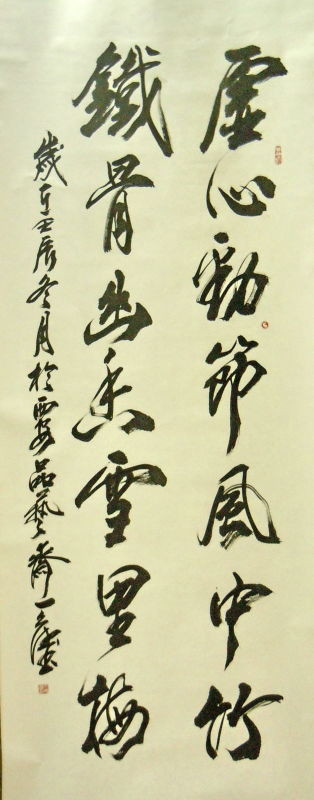 虛心勁節風中竹
鐵骨幽香雪里梅
歲在壬辰冬月於西安品藝齋一